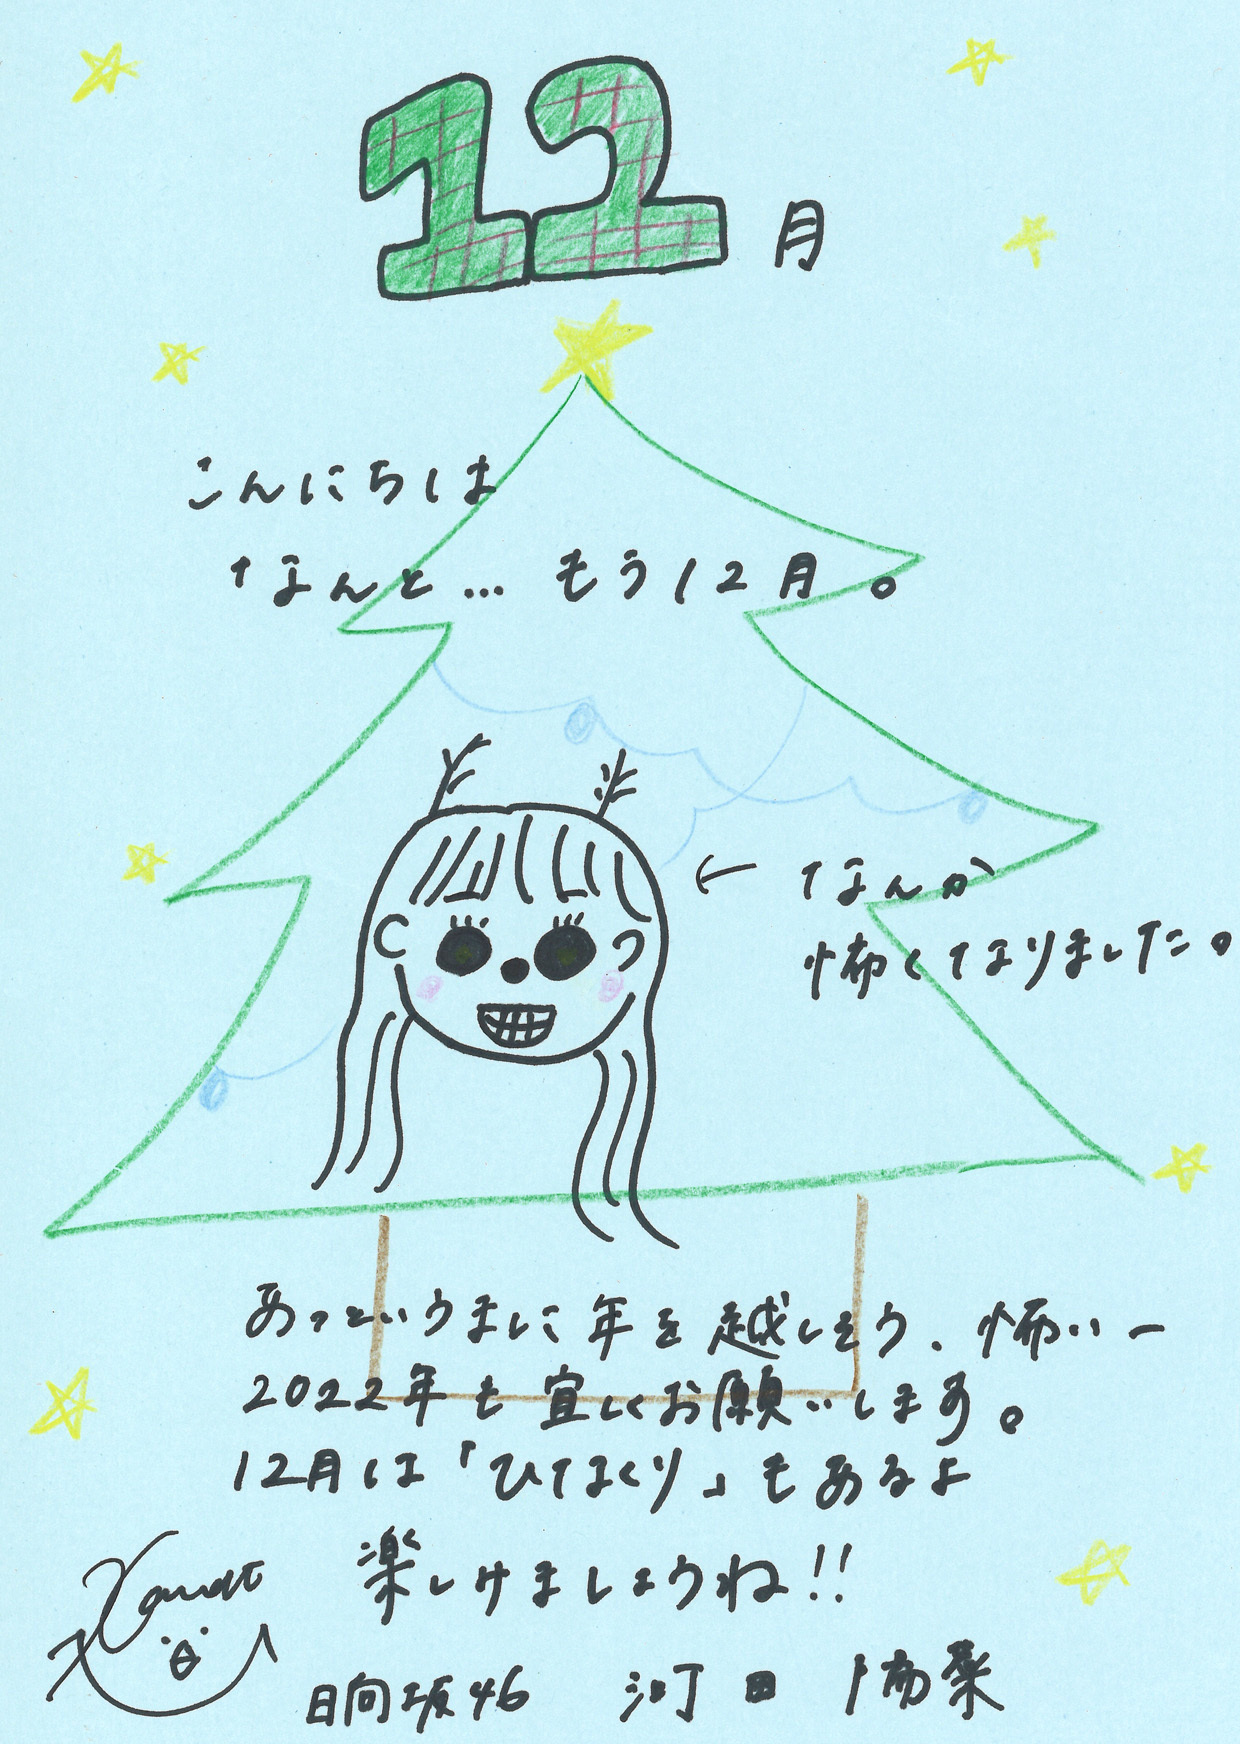 12月
こんにちは
なんと… もう12月。
← なんか
怖くなりました。
あっというまに年を越しそう、怖いー
2022年も宜しくお願いします。
12月は「ひなくり」もあるよ
楽しけましょうね!!
日向坂46 河田陽菜